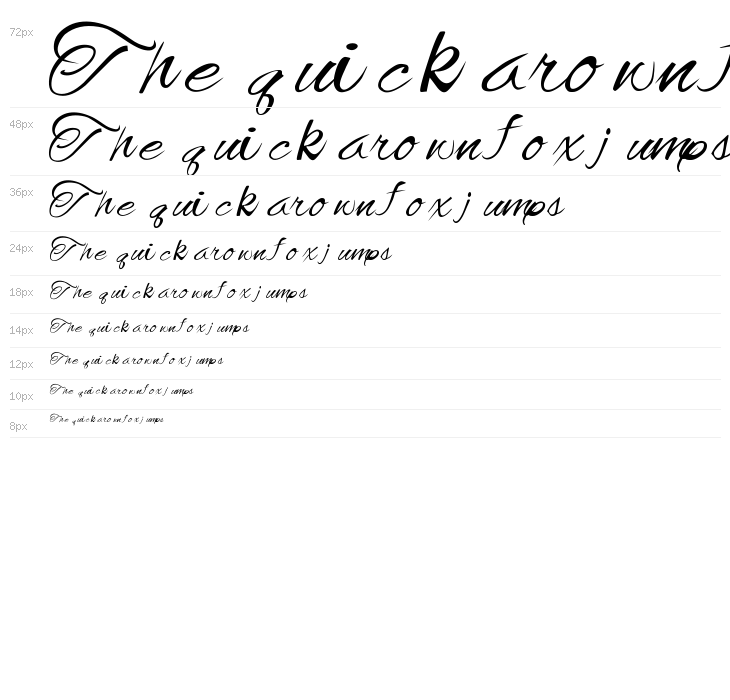 72px The quick arown f
48px The quick arown fox jumps
36px The quick arown fox jumps
24px The quick arown fox jumps
18px The quick arown fox jumps
14px The quick arown fox jumps
12px The quick arown fox jumps
10px The quick arown fox jumps
8px The quick arown fox jumps